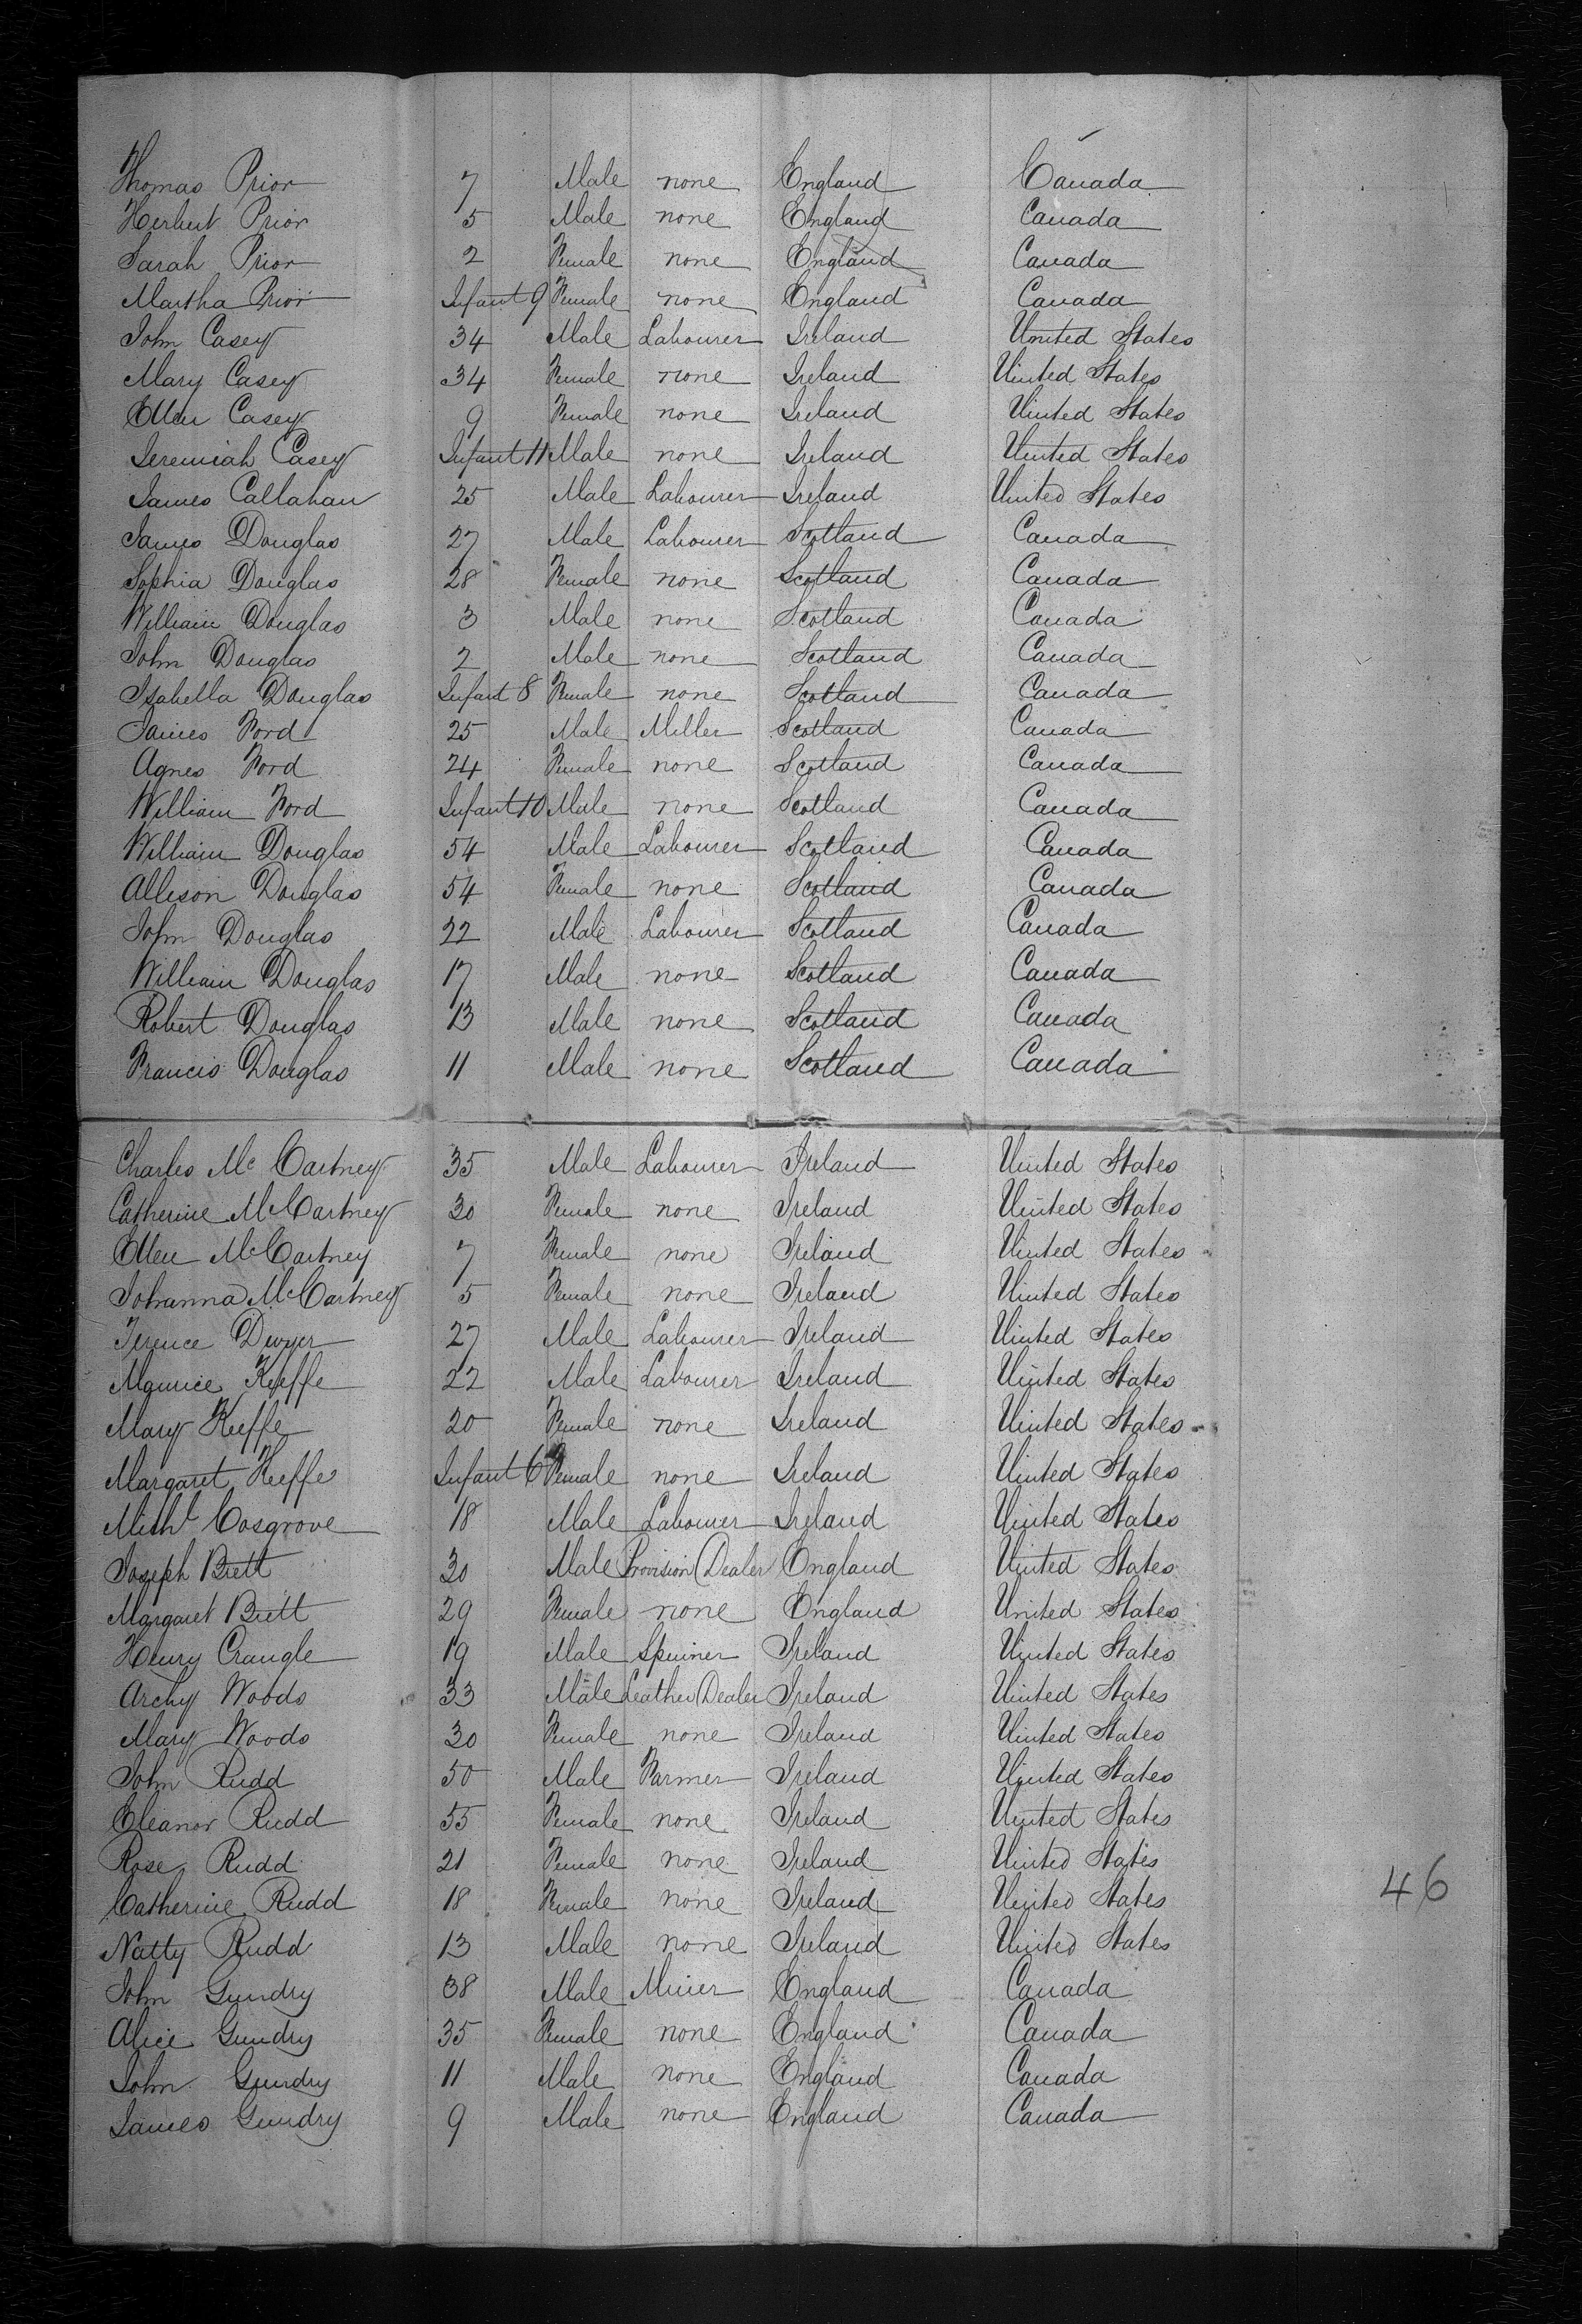 Thomas Prior 7 Male none England Canada
Herbert Prior 5 Male none England Canada
Sarah Prior 2 Female none England Canada
Martha Prior Infant 9 Female none England Canada
John Casey 34 Male Labourer Ireland United States
Mary Casey 34 Female none Ireland United States
Ellen Casey 9 Female none Ireland United States
Jeremiah Casey Infant 11 Male none Ireland United States
James Callahan 25 Male Labourer Ireland United States
James Douglas 27 Male Labourer Scotland Canada
Sophia Douglas 28 Female none Scotland Canada
William Douglas 3 Male none Scotland Canada
John Douglas 2 Male none Scotland Canada
Isabella Douglas Infant 8 Female none Scotland Canada
James Ford 25 Male Miller Scotland Canada
Agnes Ford 24 Female none Scotland Canada
William Ford Infant 10 Male none Scotland Canada
William Douglas 54 Male Labourer Scotland Canada
Allison Douglas 54 Female none Scotland Canada
John Douglas 22 Male Labourer Scotland Canada
William Douglas 17 Male none Scotland Canada
Robert Douglas 13 Male none Scotland Canada
Francis Douglas 11 Male none Scotland Canada
Charles McCartney 35 Male Labourer Ireland United States
Catherine McCartney 30 Female none Ireland United States
Ellen McCartney 7 Female none Ireland United States
Johanna McCartney 5 Female none Ireland United States
Terence Dwyer 27 Male Labourer Ireland United States
Maurice Keeffe 22 Male Labourer Ireland United States
Mary Keeffe 20 Female none Ireland United States
Margaret Keeffe Infant 6 Female none Ireland United States
Michl Cosgrove 18 Male Labourer Ireland United States
Joseph Brett 30 Male Provision Dealer England United States
Margaret Brett 29 Female none England United States
Henry Crangle 19 Male Spinner Ireland United States
Archy Woods 33 Male Leather Dealer Ireland United States
Mary Woods 30 Female none Ireland United States
John Rudd 50 Male Farmer Ireland United States
Eleanor Rudd 55 Female none Ireland United States
Rose Rudd 21 Female none Ireland United States
Catherine Rudd 18 Female none Ireland United States 46
Natty Rudd 13 Male none Ireland United States
John Gundry 38 Male Miner England Canada
Alice Gundry 35 Female none England Canada
John Gundry 11 Male none England Canada
James Gundry 9 Male none England Canada